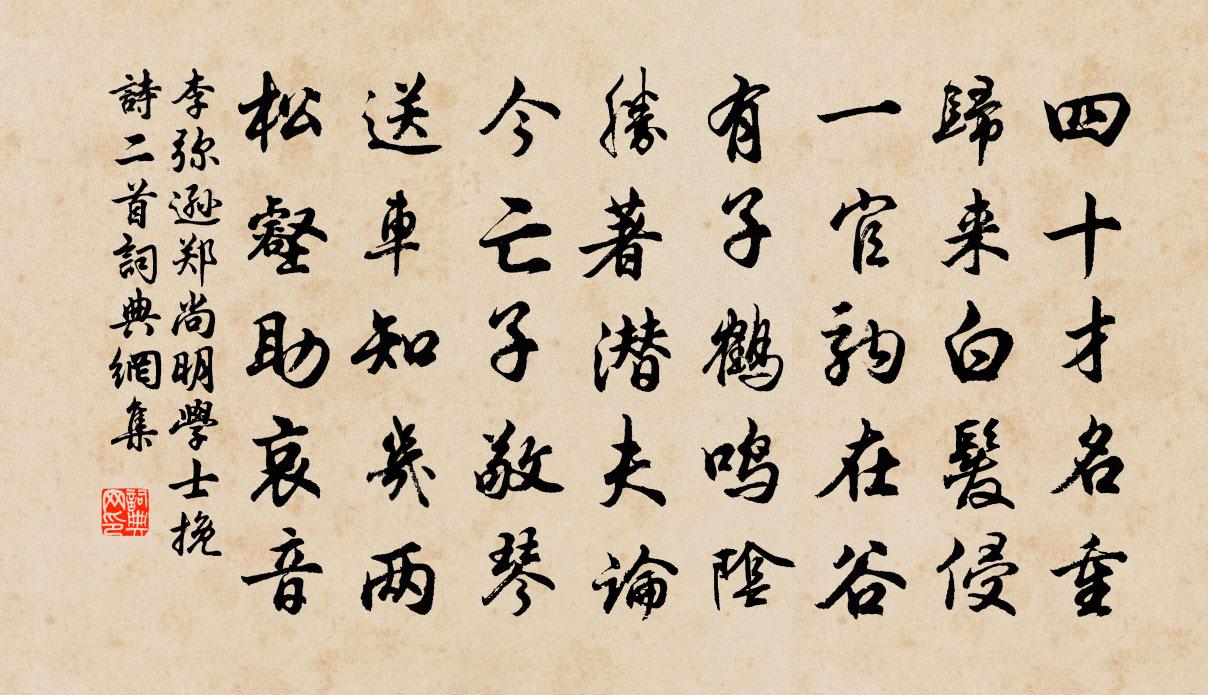 四十才名重
歸来白髮侵
一官駒在谷
有子鶴鸣陰
勝著潜夫論
今亡子敬琴
送車知幾两
松壑助哀音
李弥遜郑尚明學士挽
詩二首詞典網集
詞典网印